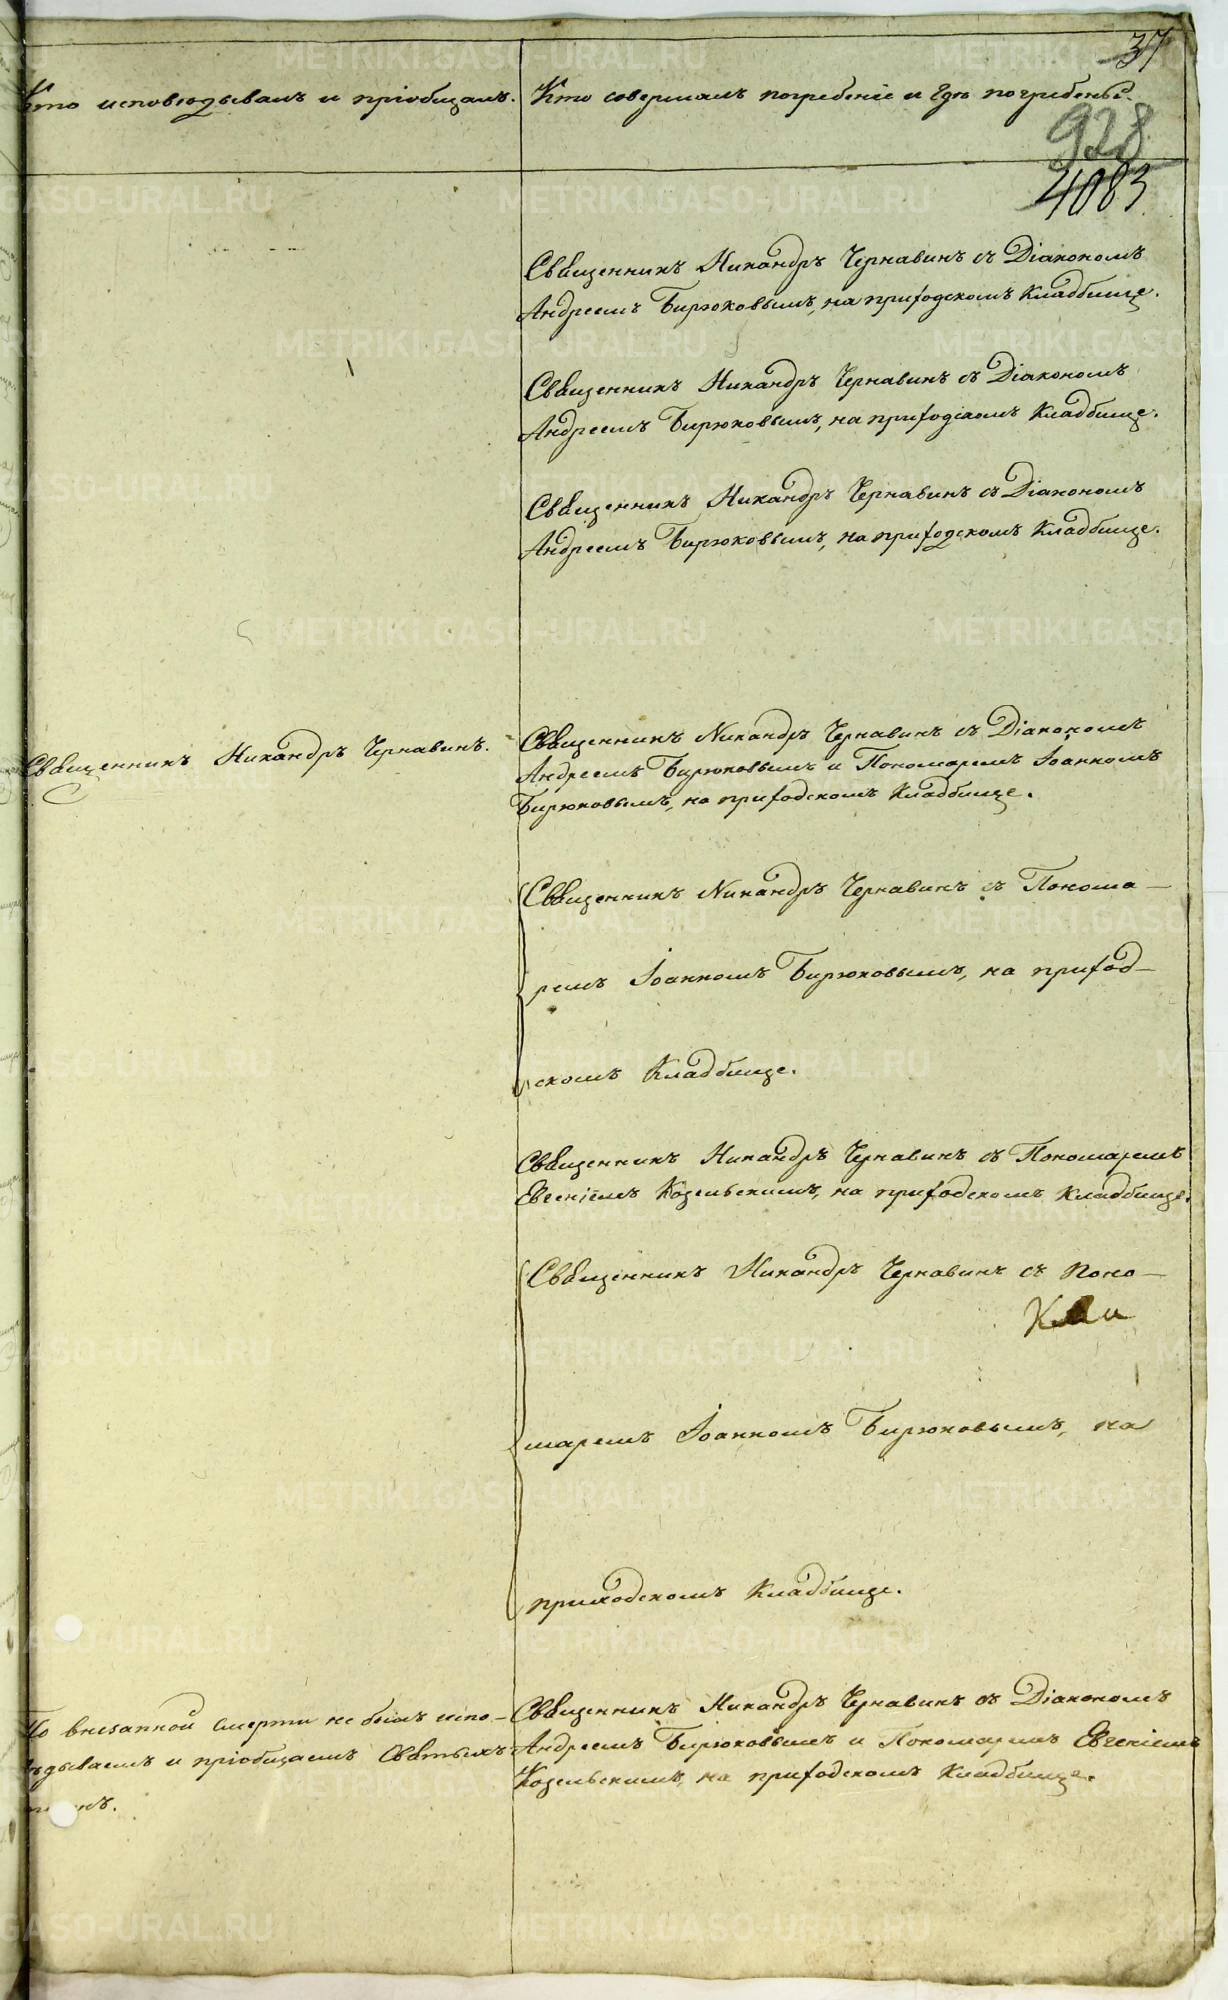 37
Кто исповѣдывалъ и пріобщалъ.
Кто совершалъ погребеніе и гдѣ погребены.
928
4083
Священникъ Никандръ Чернавинъ съ Діакономъ
Андреемъ Бирюковымъ, на приходскомъ Кладбище.
Священникъ Никандръ Чернавинъ съ Діакономъ
Андреемъ Бирюковымъ, на приходскомъ Кладбище.
Священникъ Никандръ Чернавинъ съ Діакономъ
Андреемъ Бирюковымъ, на приходскомъ Кладбище.
Священникъ Никандръ Чернавинъ.
Священникъ Никандръ Чернавинъ съ Діакономъ
Андреемъ Бирюковымъ и Пономаремъ Іоанномъ
Бирюковымъ, на приходскомъ Кладбище.
Священникъ Никандръ Чернавинъ съ Понома-
ремъ Іоанномъ Бирюковымъ, на приход-
скомъ Кладбище.
Священникъ Никандръ Чернавинъ съ Пономаремъ
Евгеніемъ Козельскимъ, на приходскомъ Кладбище.
Священникъ Никандръ Чернавинъ съ Поно-
маремъ Іоанномъ Бирюковымъ, на
приходскомъ Кладбище.
По внезапной смерти не былъ испо-
вѣдываемъ и пріобщаемъ Святыхъ
Священникъ Никандръ Чернавинъ съ Діакономъ
Андреемъ Бирюковымъ и Пономаремъ Евгеніемъ
Козельскимъ, на приходскомъ Кладбище.
METRIKI.GASO-URAL.RU